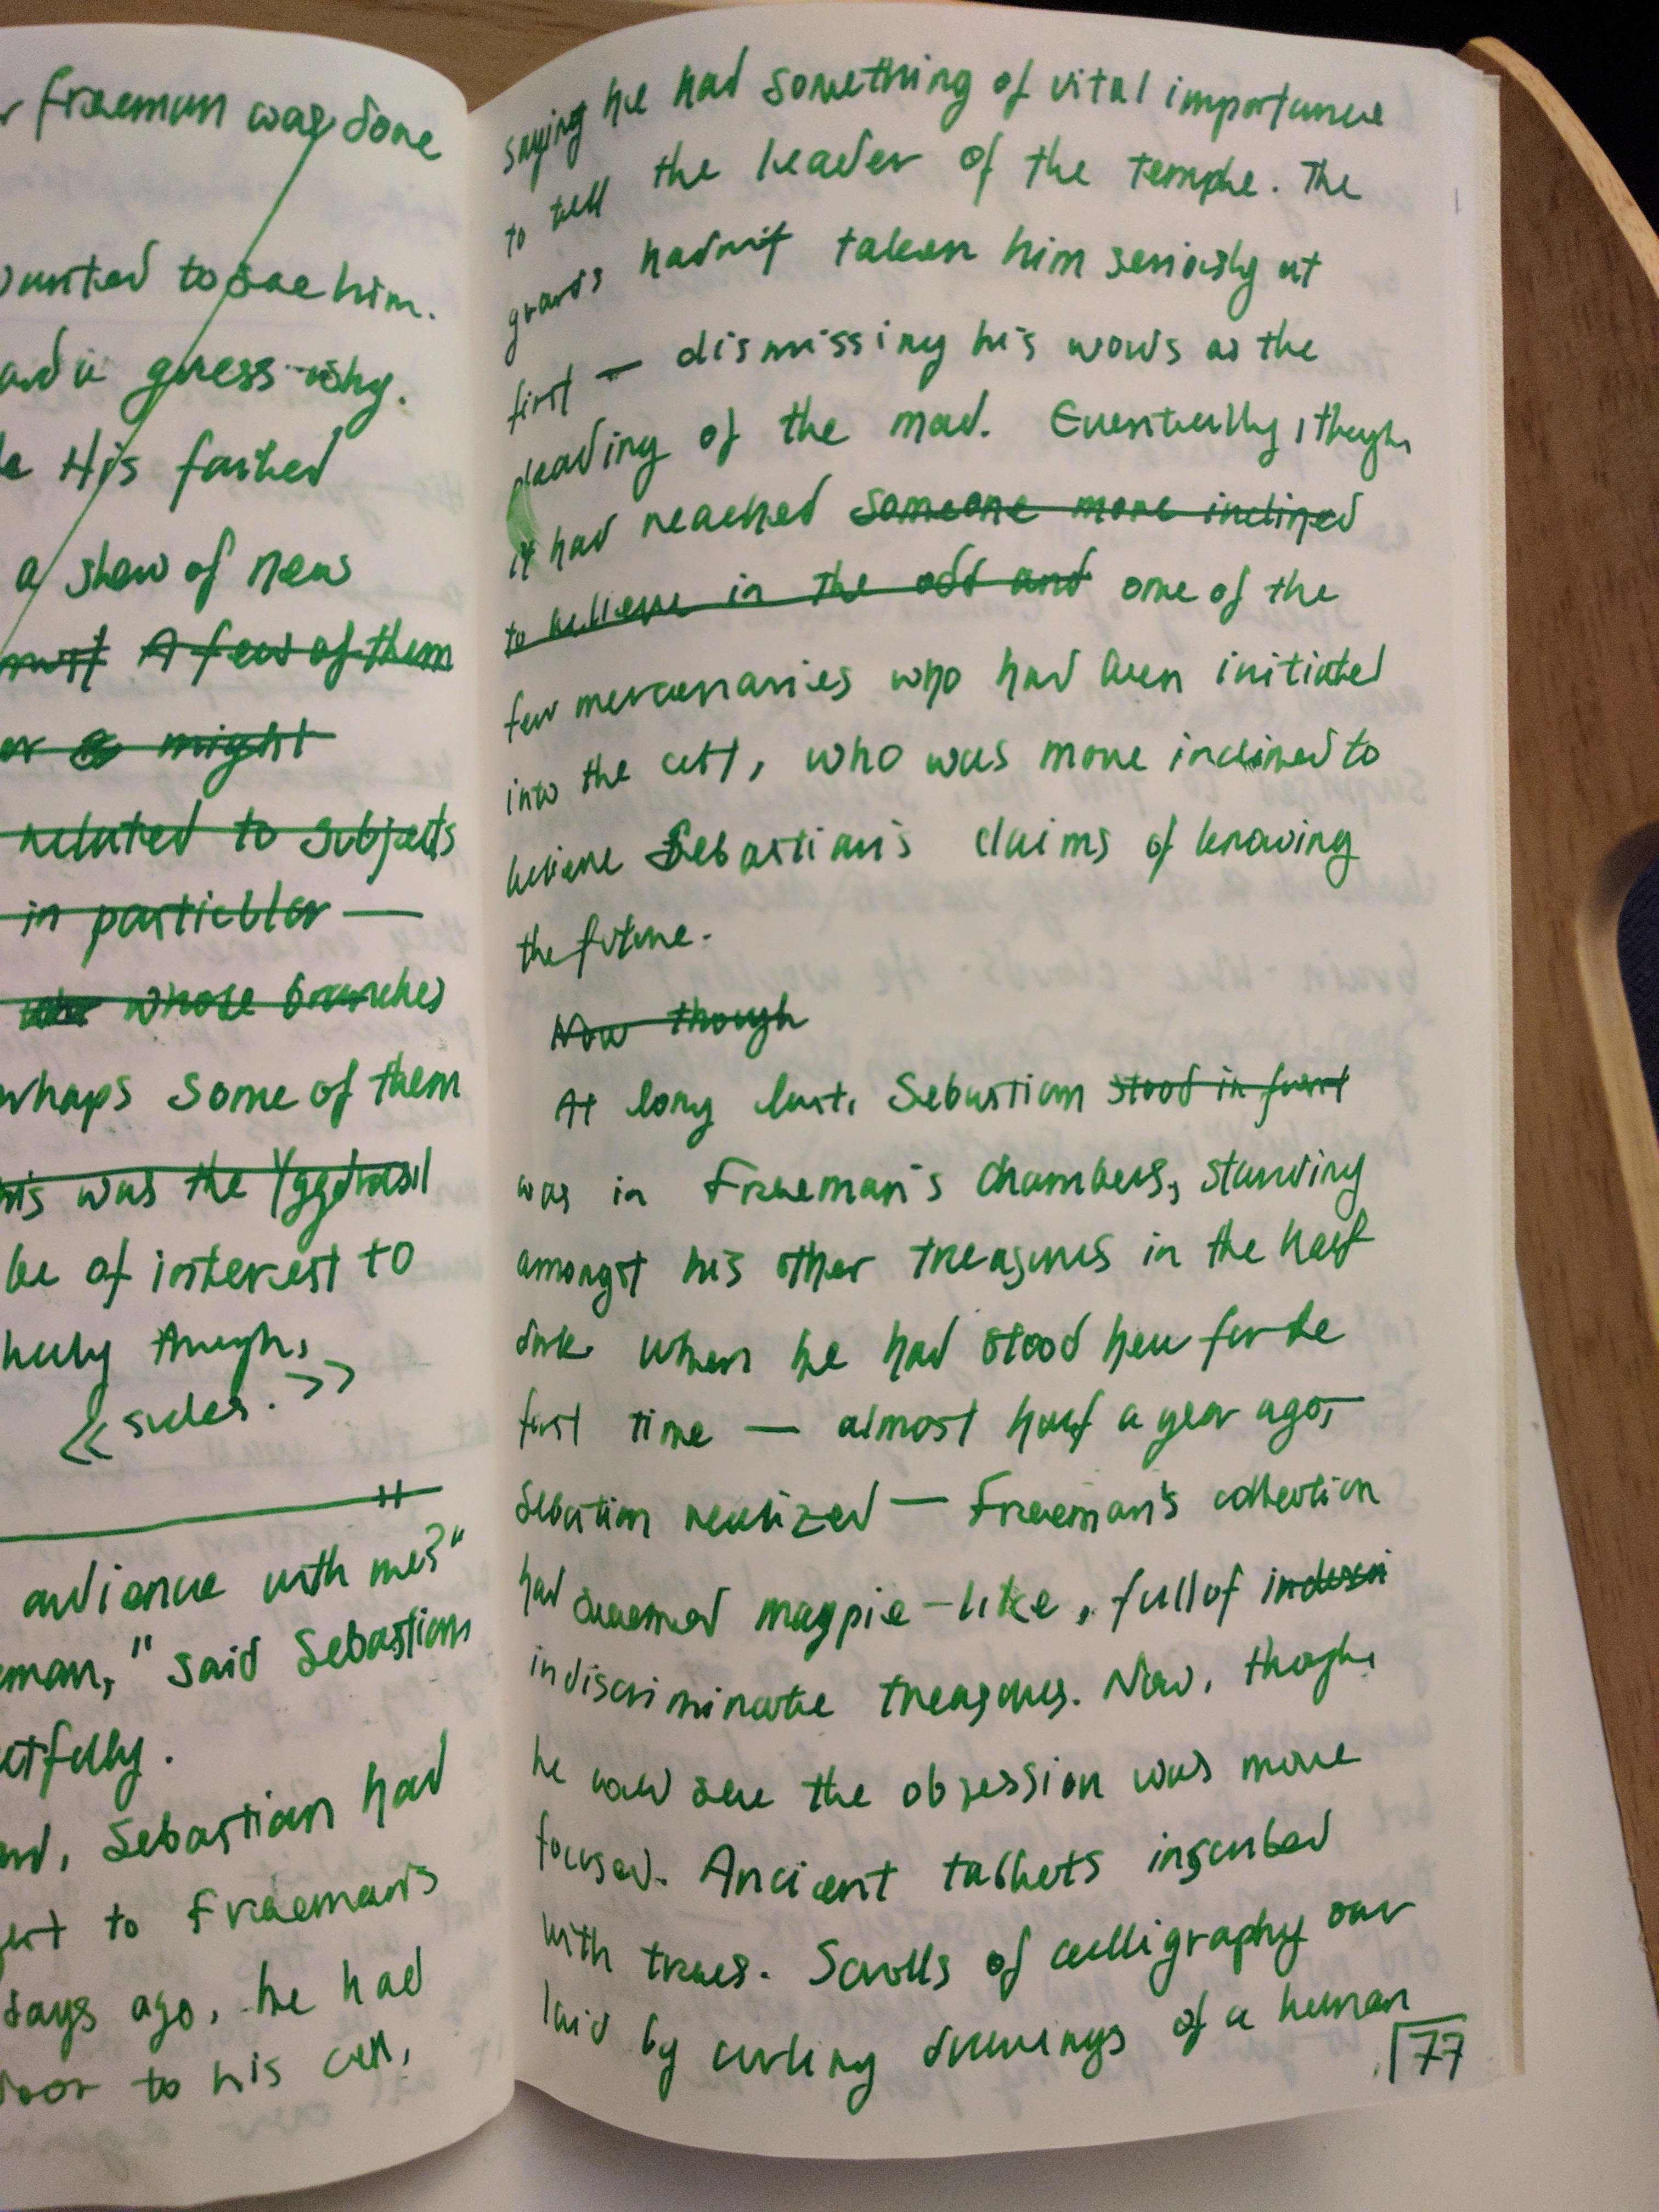 freeman was done
wanted to see him.
guess why.
His failed
a slew of new
A few of them
or might
related to subjects
in particular —
whose branches
perhaps some of them
this was the Yggdrasil
be of interest to
though,
<< sides. >>
audience with me?"
eman," said Sebastian
Sebastian had
to Freeman's
days ago, he had
door to his cell,
saying he had something of vital importance
to tell the leader of the temple. The
guards hadn't taken him seriously at
first — dismissing his words as the
pleading of the mad. Eventually, though,
it had reached someone more inclined
to believe in the odd and one of the
few mercenaries who had been initiated
into the cult, who was more inclined to
believe Sebastian's claims of knowing
the future.
Now though
At long last, Sebastian stood in front
was in Freeman's chambers, standing
amongst his other treasures in the half
dark. When he had stood here for the
first time — almost half a year ago,
Sebastian realized — Freeman's collection
had seemed magpie-like, full of
indiscriminate treasures. Now, though,
he could see the obsession was more
focused. Ancient tablets inscribed
with trees. Scrolls of calligraphy over
laid by curling drawings of a human
77